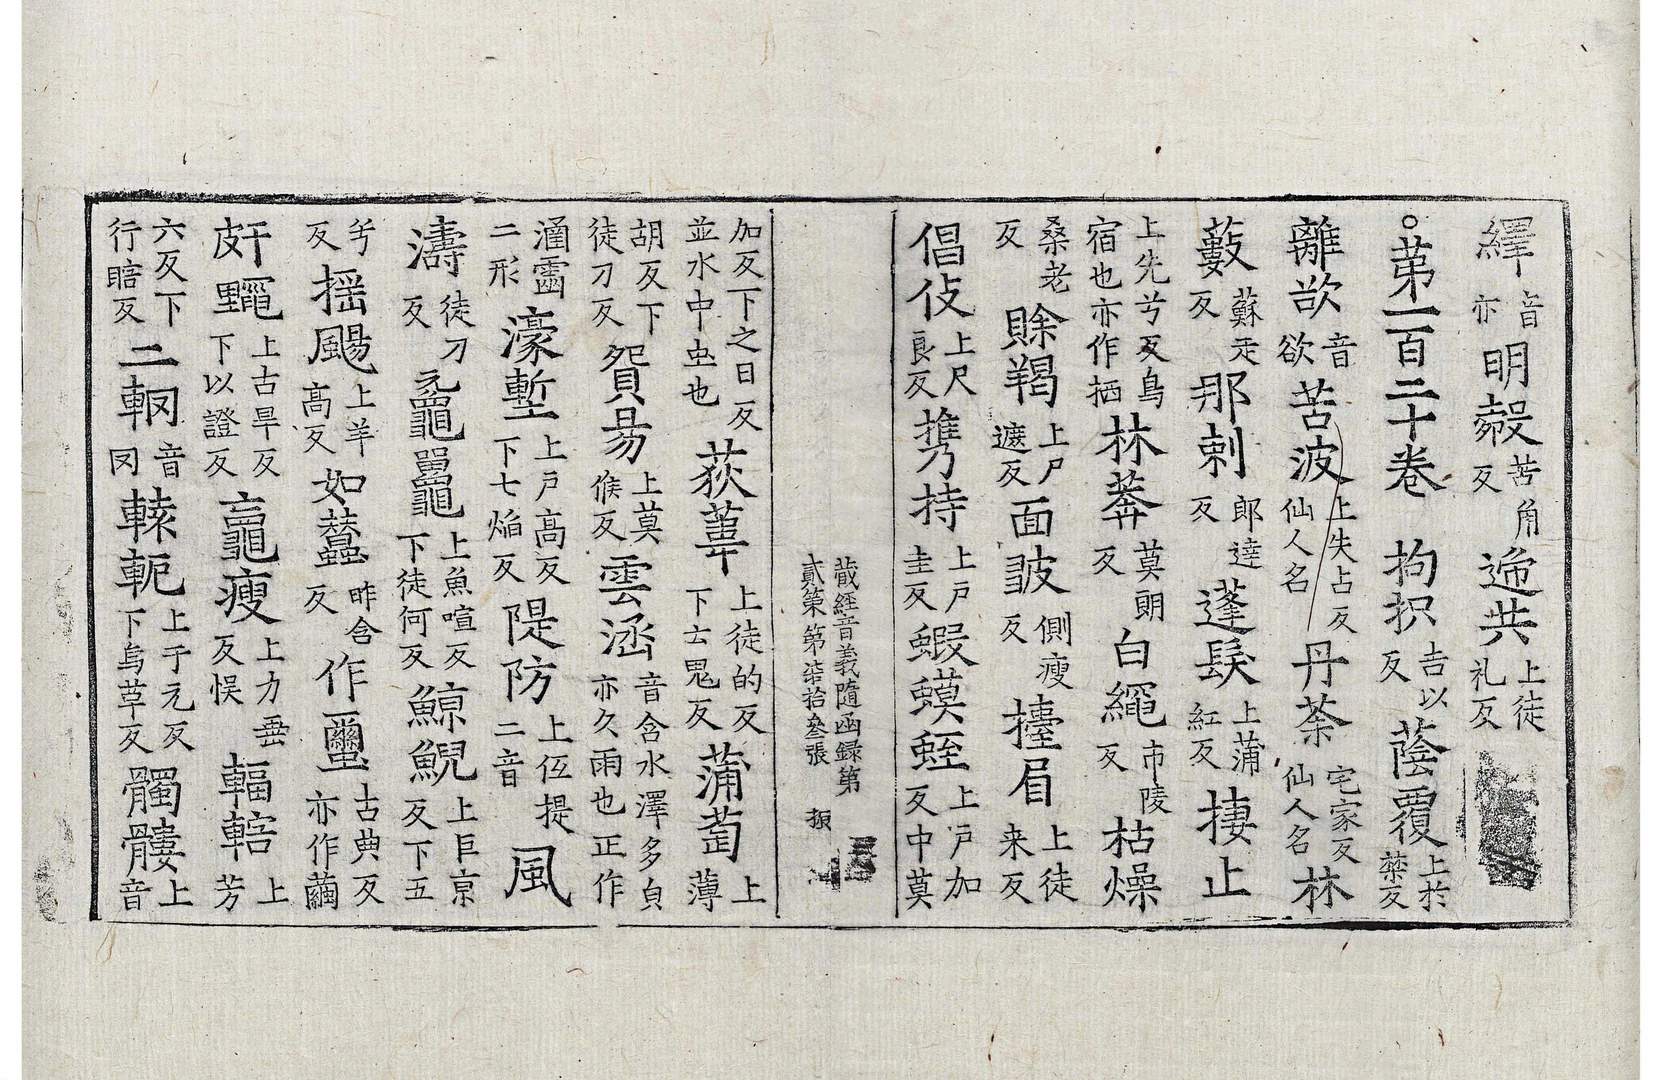 繹音亦明㲉苦角反遞共上徒礼反
○第一百二十卷拘抧吉以反蔭覆上於禁反
離欲音欲苦波上失占反仙人名丹荼宅家反仙人名林
藪蘇走反那剌郎達反蓬髮上蒲紅反捿止
上先兮反鳥宿也亦作栖林莽莫朗反白繩市陵反枯燥
桑老反賖羯上尸遮反面皷側瘦反擡眉上徒来反
倡伎上尺良反擕持上戶圭反蝦蟆蛭上戶加反中莫
藏經音義隨函録第貳第第柒拾叄張 振
加反下之日反並水中虫也荻葦上徒的反下士鬼反蒲萄上薄
胡反下徒刀反貿易上莫候反雲涵音含水澤多皃亦久雨也正作
涵霝二形濠塹上戶高反下七焰反隄防上伍提二音風
濤徒刀反黿鼉上魚喧反下徒何反鯨鯢上巨京反下五
兮反摇颺上羊高反如蠶昨含反作璽古典反亦作繭
皯䵴上古旱反下以證反竈瘦上力垂反悮輻轄上芳
六反下行瞎反二輞音罔轅軛上于元反下烏革反髑髏上音